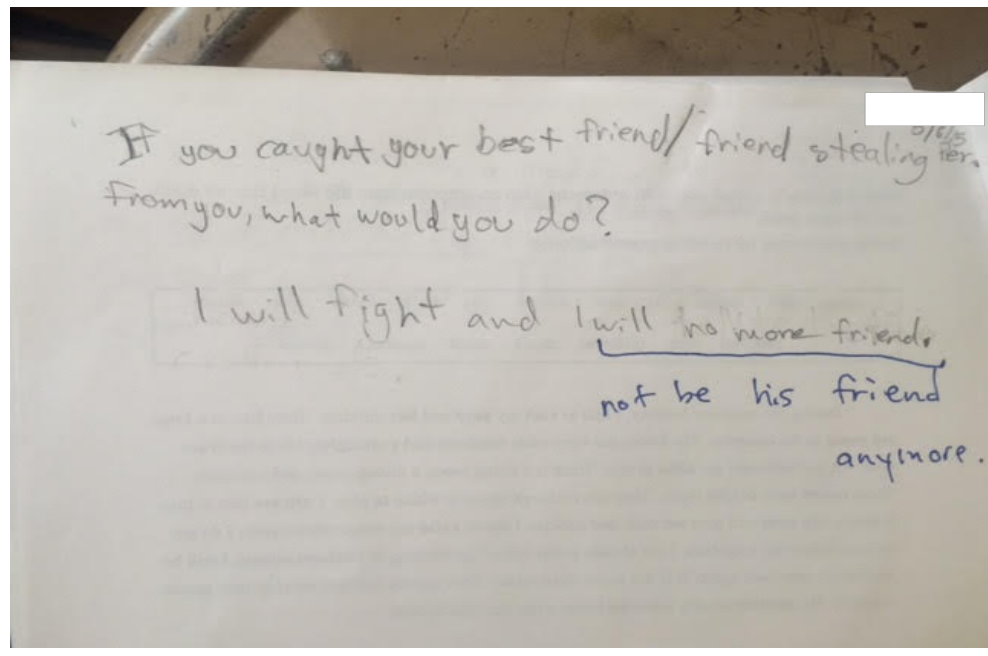 If you caught your best friend/friend stealing
From you, what would you do?
I will fight and I will no more friend.
not be his friend
anymore.